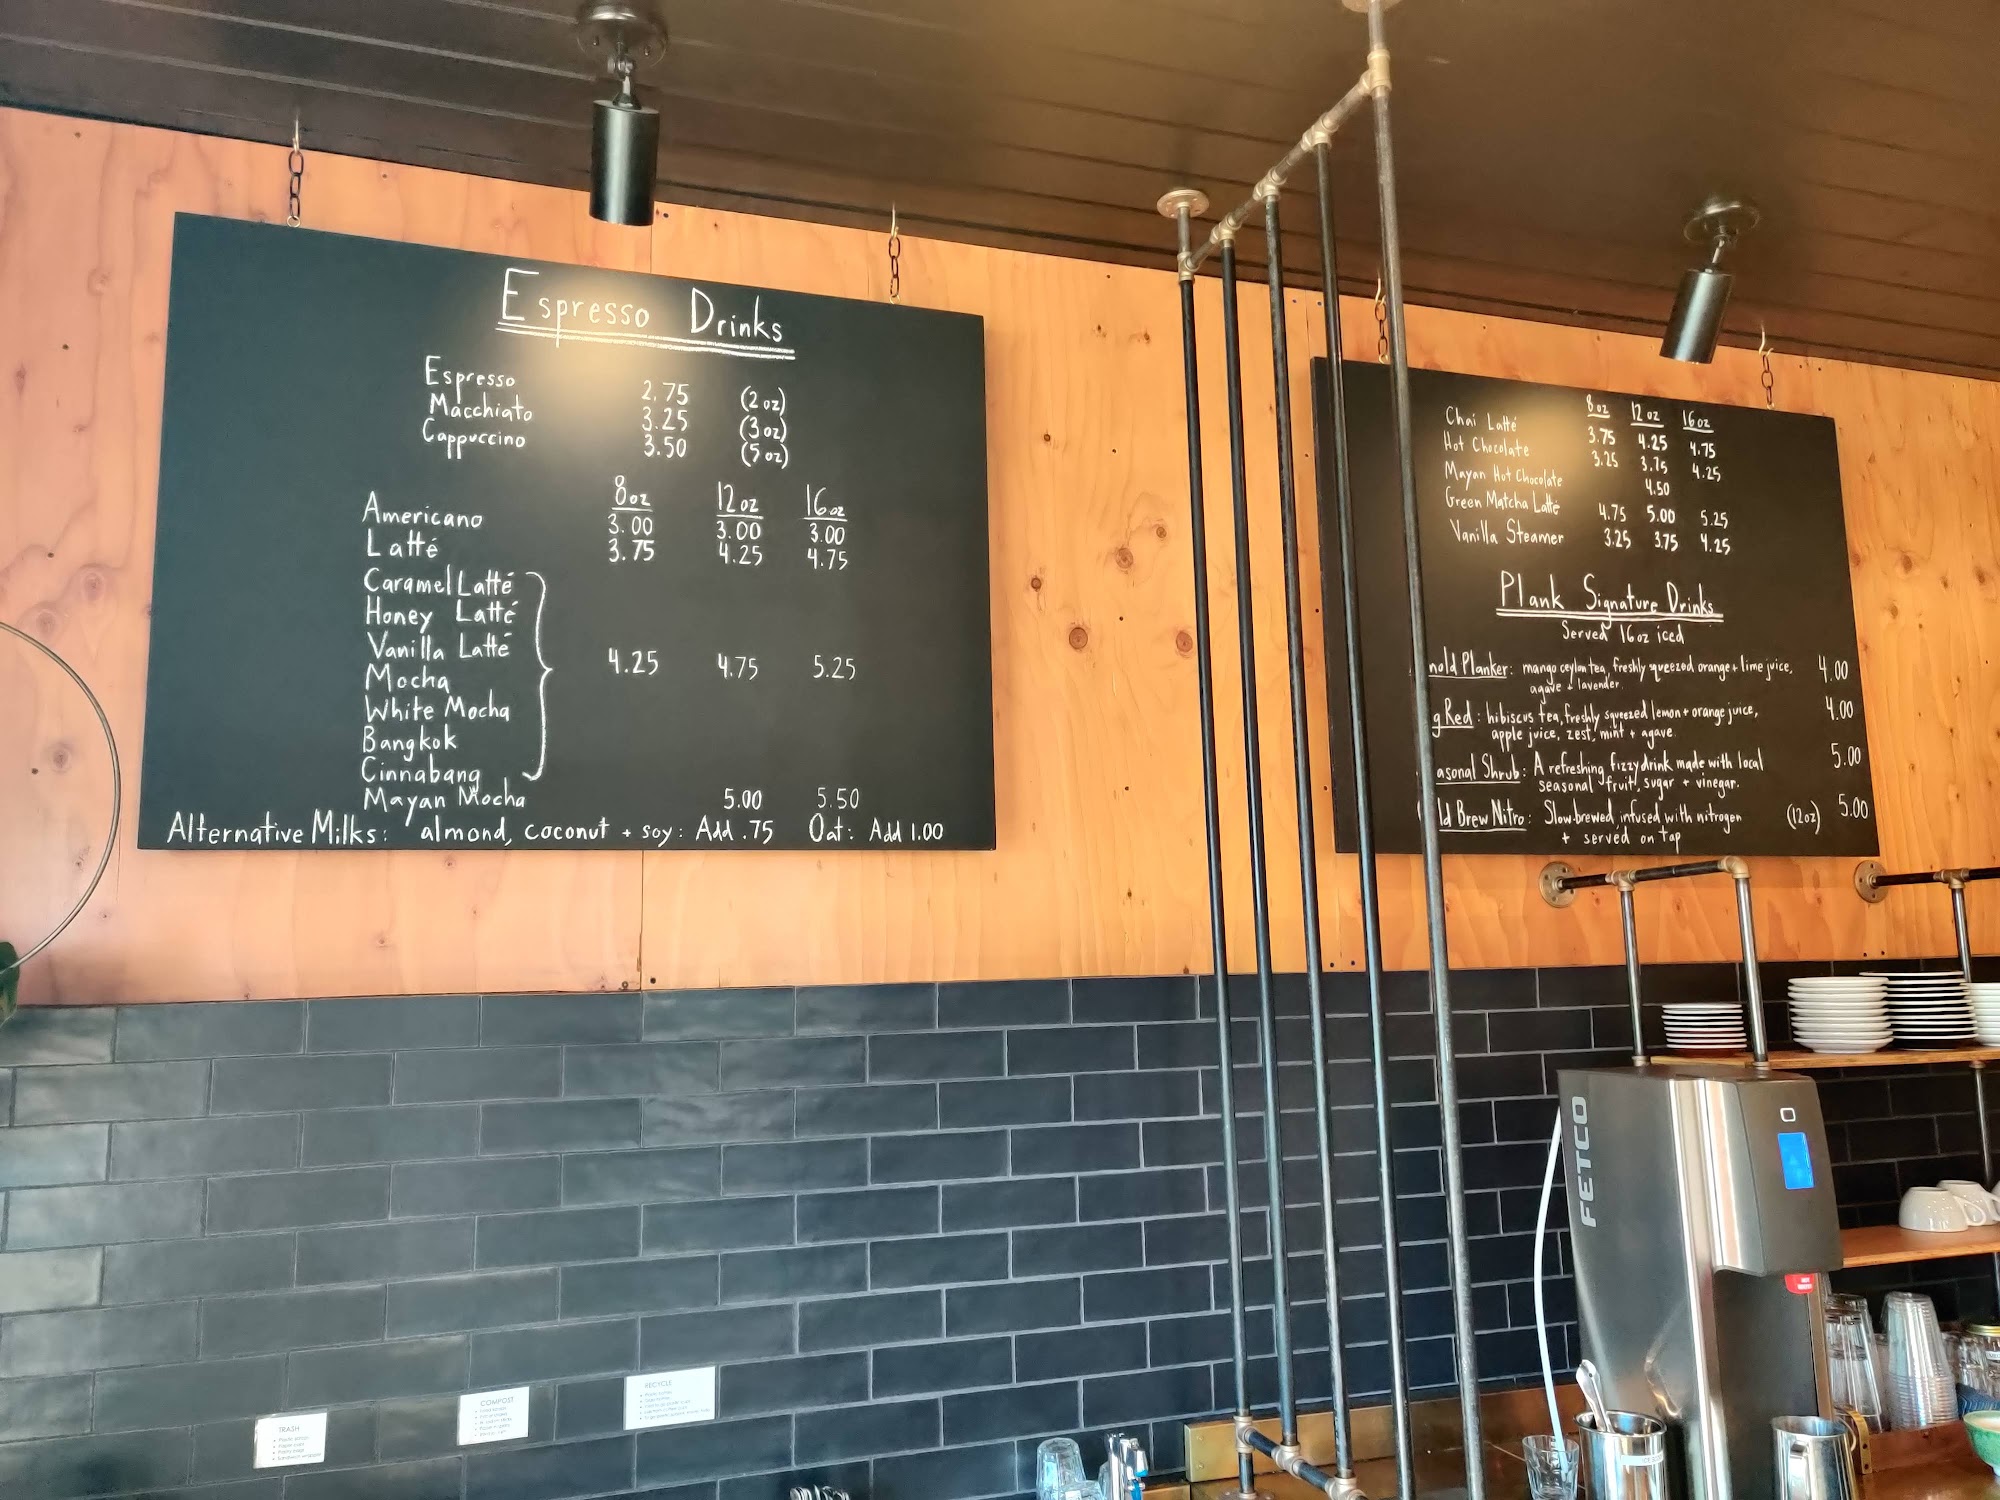 Espresso Drinks
Espresso 2.75 (2 oz)
Macchiato 3.25 (3 oz)
Cappuccino 3.50 (5 oz)
8oz 12 oz 16 oz
Americano 3.00 3.00 3.00
Latté 3.75 4.25 4.75
Caramel Latté
Honey Latté
Vanilla Latté
Mocha 4.25 4.75 5.25
White Mocha
Bangkok
Cinnabang
Mayan Mocha 5.00 5.50
Alternative Milks: almond, coconut + soy: Add .75 Oat: Add 1.00
8 oz 12 oz 16 oz
Chai Latté 3.75 4.25 4.75
Hot Chocolate 3.25 3.75 4.25
Mayan Hot Chocolate 4.50
Green Matcha Latté 4.75 5.00 5.25
Vanilla Steamer 3.25 3.75 4.25
Plank Signature Drinks
Served 16oz iced
nold Planker: mango ceylon tea, freshly squeezed orange + lime juice, 4.00
agave + lavender.
g Red: hibiscus tea, freshly squeezed lemon + orange juice, 4.00
apple juice, zest, mint + agave.
asonal Shrub: A refreshing fizzy drink made with local 5.00
seasonal fruit, sugar + vinegar.
ld Brew Nitro: Slow-brewed, infused with nitrogen (12oz) 5.00
+ served on tap
FETCO
TRASH
COMPOST
RECYCLE